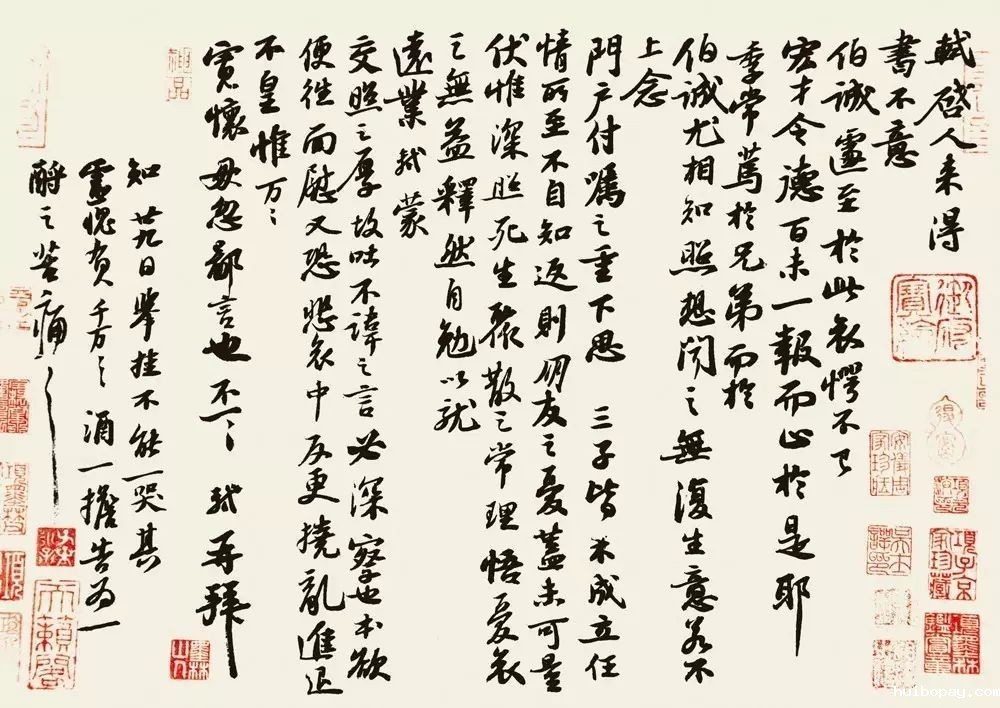 軾啓人来得
書不意
伯誠遽至於此哀愕不已
宏才令德百未一報而止於是耶
季常篤於兄弟而於
伯誠尤相知照想聞之無復生意若不
上念
門户付嘱之重下思三子皆未成立任
情所至不自知返則朋友之憂蓋未可量
伏惟深照死生聚散之常理悟憂哀
之無益釋然自勉以就
遠業軾蒙
交照之厚故吐不諱之言必深察也本欲
便往面慰又恐悲哀中反更撓亂進退
不皇惟万々
寬懷毋忽鄙言也不一々軾再拜
知廿九日舉掛不能一哭其
靈愧負千万々酒一擔告為一
酹之苦痛々
御府寶繪
項子京家珍藏
項墨林鑑賞章
天籟閣
墨林山人
huibopay.com